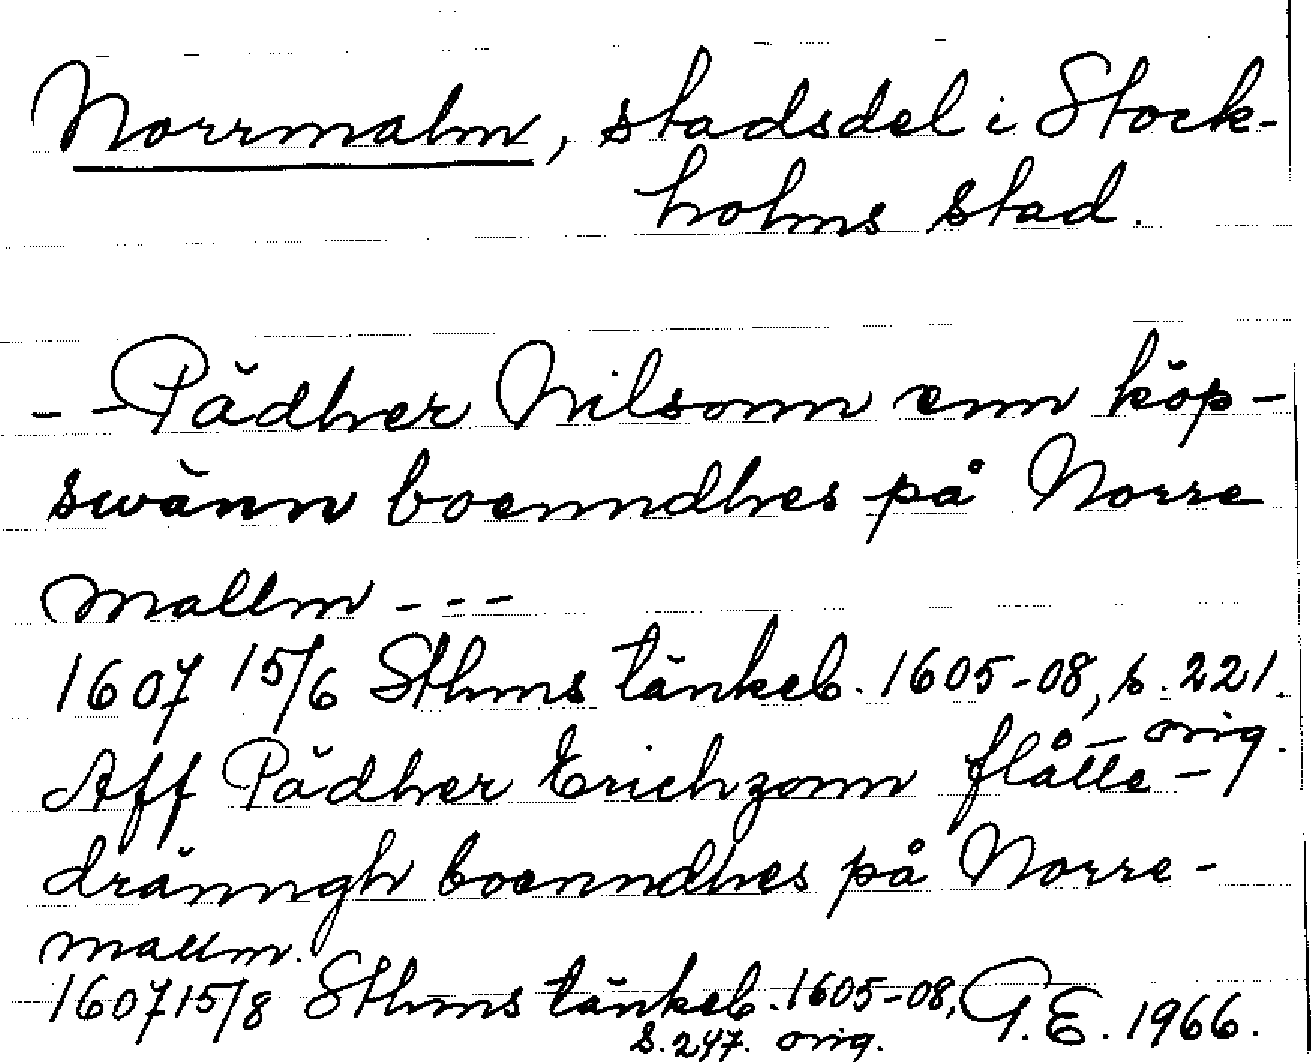 Norrmalm, stadsdel i Stock-
holms stad.
- - Pädher Nilsonn enn köp-
swänn boenndhes på Norre
mallm - - -
1607 15/6 Sthms tänkeb. 1605-08, s. 221.
orig.
Aff Pädher Erichzonn flåtte-
dränngh boenndhes på Norre-
mallm.
1607 15/8 Sthms tänkeb. 1605-08,
s. 247. orig.
G.E. 1966.